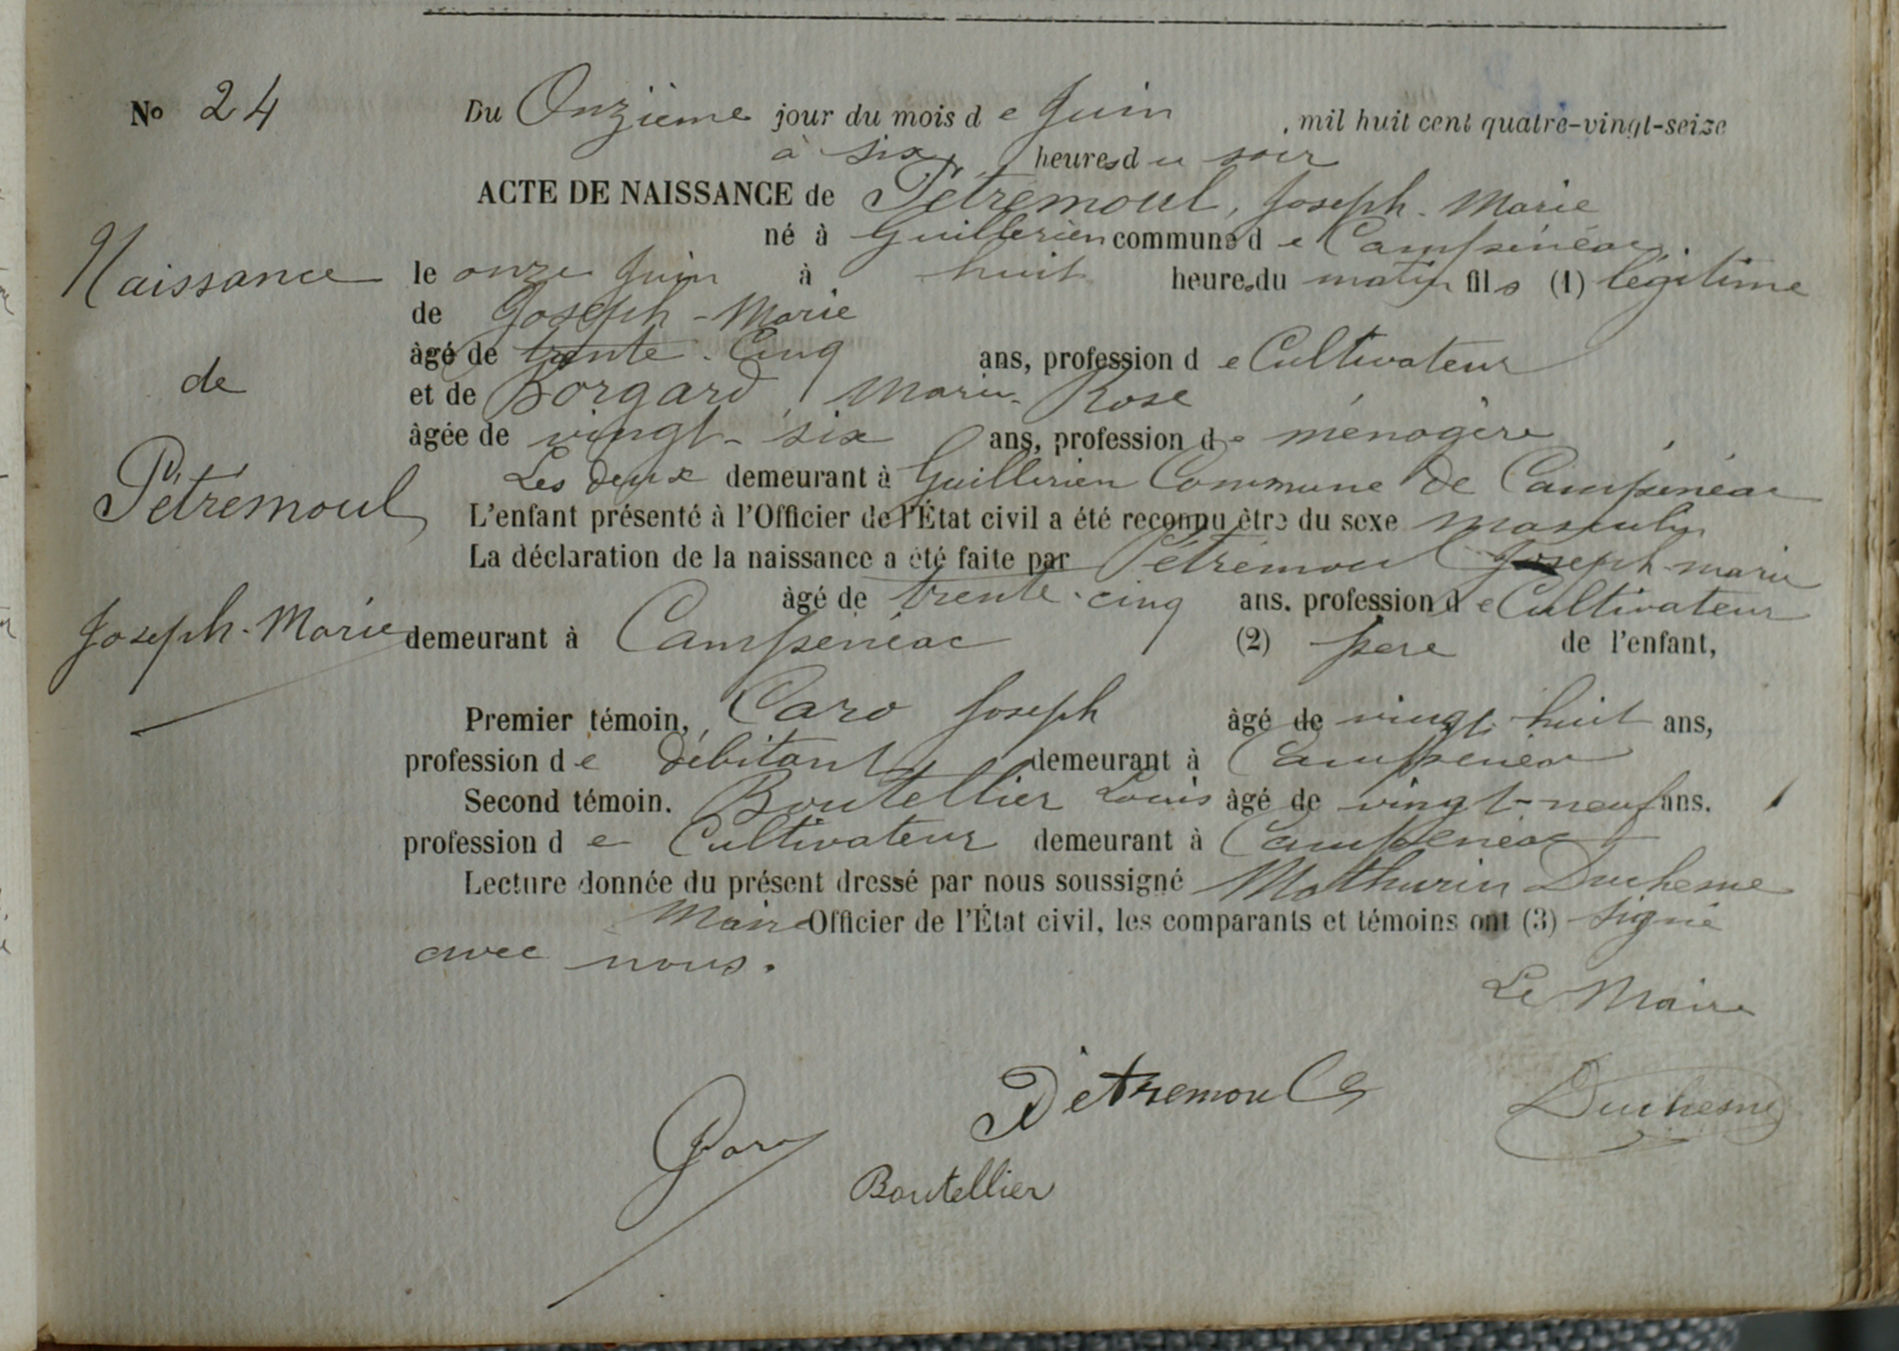 No 24
Du Onzième jour du mois de Juin , mil huit cent quatre-vingt-seize
à six heures du soir
ACTE DE NAISSANCE de Pétrémoul, Joseph-Marie
né à Guillerien commune de Campénéac.
Naissance
le onze Juin à huit heures du matin fils (1) légitime
de Joseph-Marie
de
âgé de trente-Cinq ans, profession de Cultivateur
et de Borgard, Marie-Rose
âgée de vingt-six ans, profession de ménagère
Les deux demeurant à Guillerien Commune de Campénéac
Pétrémoul
L'enfant présenté à l'Officier de l'État civil a été reconnu être du sexe masculin
La déclaration de la naissance a été faite par Pétrémoul Joseph-marie
âgé de trente-cinq ans. profession de Cultivateur
Joseph-Marie
demeurant à Campénéac (2) père de l'enfant,
Premier témoin, Caro Joseph âgé de vingt-huit ans,
profession de débitant demeurant à Campénéac
Second témoin. Boutellier Louis âgé de vingt-neuf ans.
profession de Cultivateur demeurant à Campénéac
Lecture donnée du présent dressé par nous soussigné Mathurin Duchesne
Maire Officier de l'État civil, les comparants et témoins ont (3) signé
avec nous.
Le Maire
Petremoul
Duchesne
Caro
Boutellier